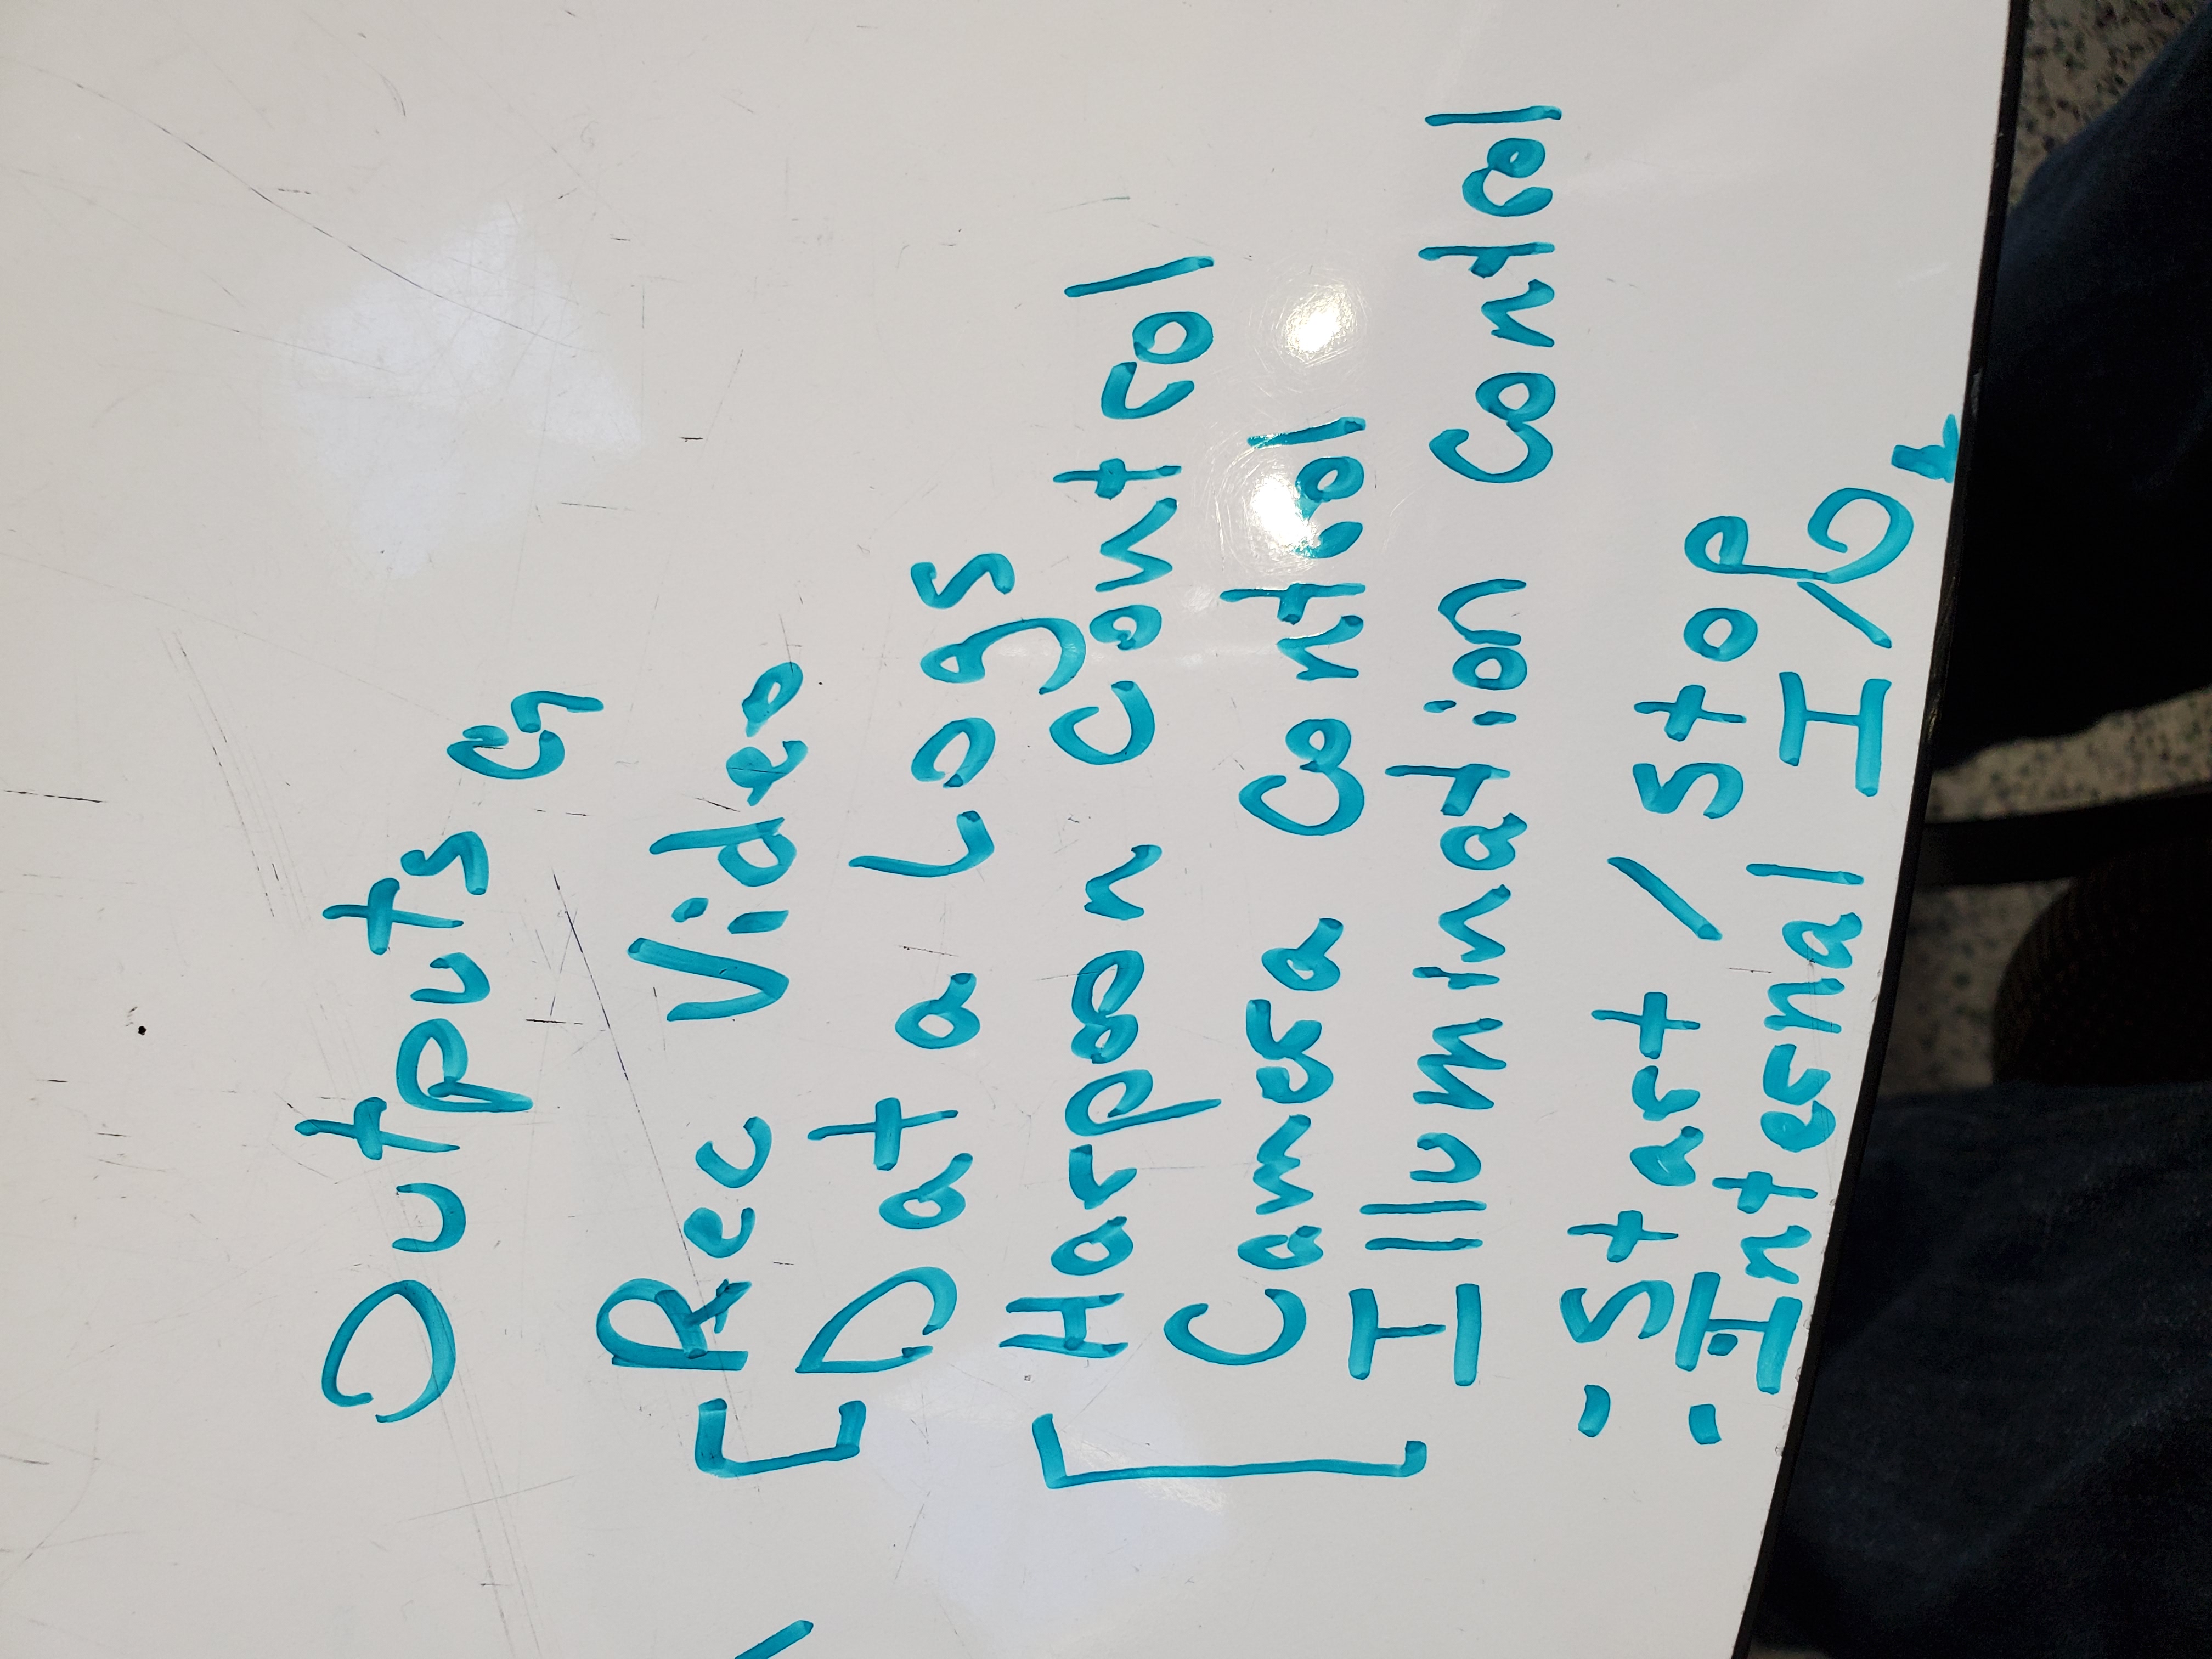 Outputs G
Rec Video
Data Logs
Harpoon Control
Camera Control
Illumination Control
- Start / Stop
- Internal I/O